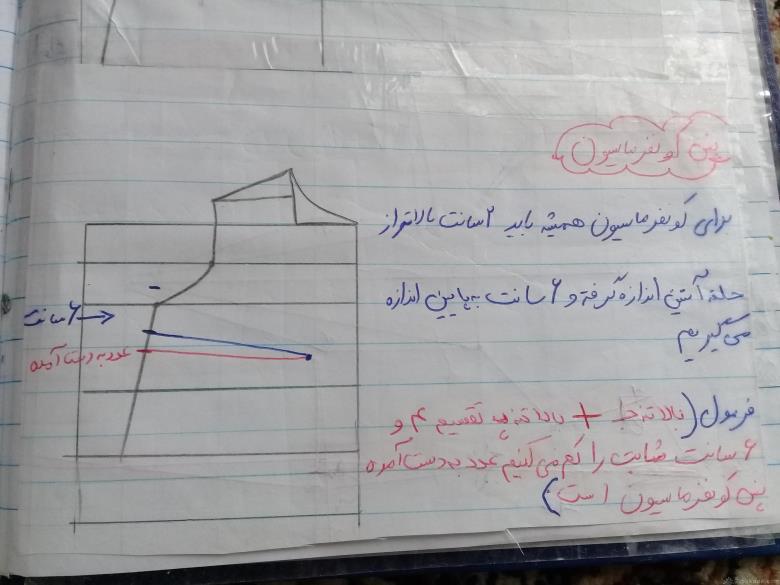 پنس کونفرماسیون
برای کونفرماسیون همیشه باید ۲ سانت بالاتر از
حلقه آستین اندازه گرفته و ۶ سانت به پایین اندازه
می گیریم
۶ سانت
عدد به دست آمده
فرمول (بالاتنه + بالاتنه تقسیم ۲ و
۶ سانت ثابت را کم می کنیم عدد به دست آمده
پنس کونفرماسیون است)